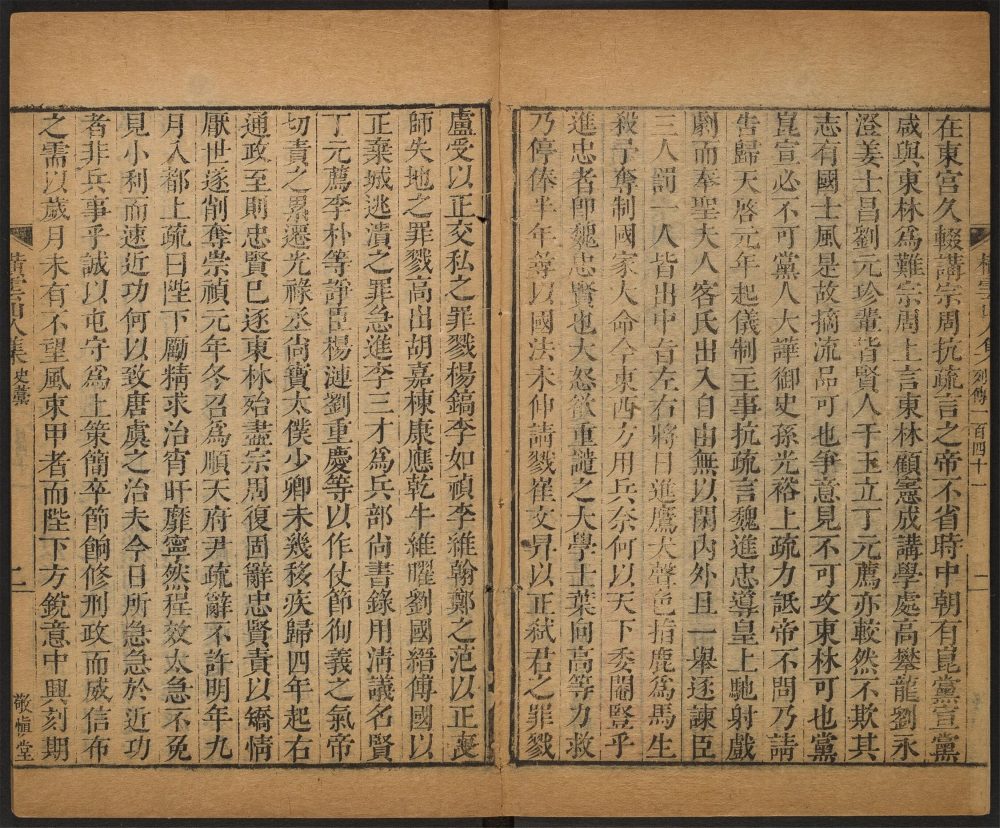 在東宮久輟講宗周抗疏言之帝不省時中朝有崑黨宣黨
咸與東林爲難宗周上言東林顧憲成講學處高攀龍劉永
澄姜士昌劉元珍輩皆賢人于玉立丁元薦亦較然不欺其
志有國士風是故摘流品可也爭意見不可攻東林可也黨
崑宣必不可黨人大譁御史孫光裕上疏力詆帝不問乃請
告歸天啓元年起儀制主事抗疏言魏進忠導皇上馳射戲
劇而奉聖夫人客氏出入自由無以閑內外且一舉逐諫臣
三人罰一人皆出中旨左右將日進鷹犬聲色指鹿爲馬生
殺予奪制國家大命今東西方用兵奈何以天下委閹豎乎
進忠者卽魏忠賢也大怒欲重譴之大學士葉向高等力救
乃停俸半年尋以國法未伸請戮崔文昇以正弑君之罪戮
列傳 一百四十一
一
盧受以正交私之罪戮楊鎬李如禎李維翰鄭之范以正喪
師失地之罪戮高出胡嘉棟康應乾牛維曜劉國縉傅國以
正棄城逃潰之罪急進李三才爲兵部尚書錄用淸議名賢
丁元薦李朴等諍臣楊漣劉重慶等以作仗節徇義之氣帝
切責之累遷光祿丞尙寶太僕少卿未幾移疾歸四年起右
通政至則忠賢已逐東林殆盡宗周復固辭忠賢責以矯情
厭世遂削奪崇禎元年冬召爲順天府尹疏辭不許明年九
月入都上疏曰陛下勵精求治宵旰靡寧然程效太急不免
見小利而速近功何以致唐虞之治夫今日所急急於近功
者非兵事乎誠以屯守爲上策簡卒節餉修刑政而威信布
之需以歲月未有不望風東甲者而陛下方銳意中興刻期
史藁
二
敬愼堂